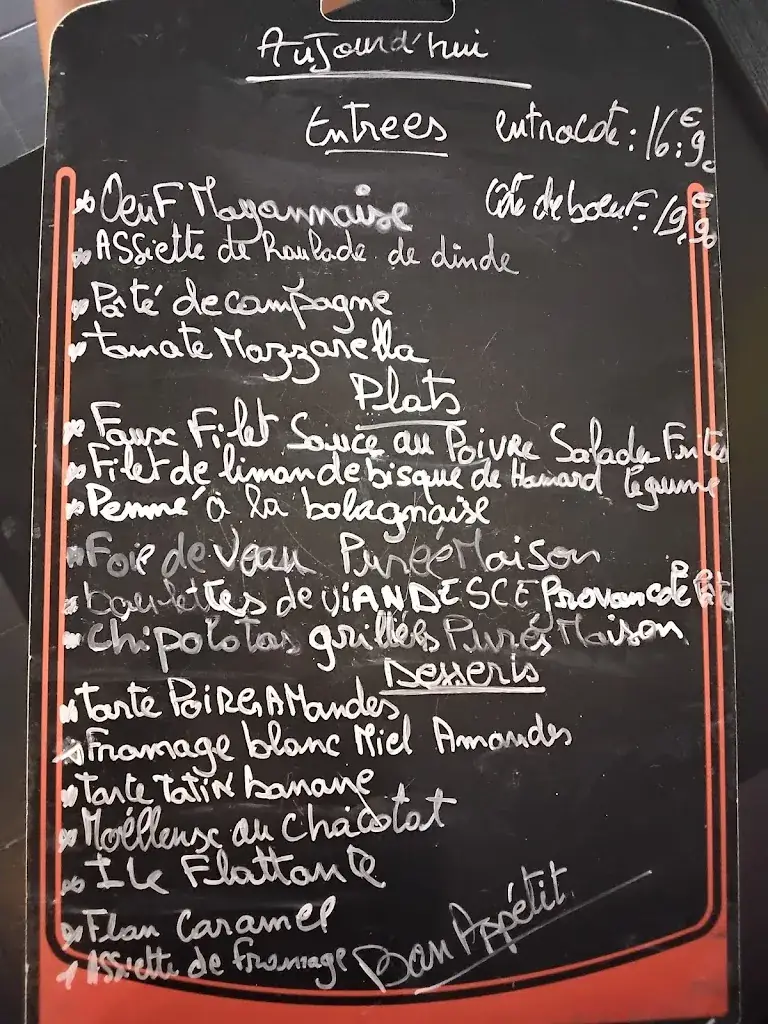 Aujourd'hui
Entrees
entrocote: 16:9€
Côte de boeuf: 19,90€
Oeuf Mayonnaise
Assiette de Roulade de dinde
Pâté de campagne
tomate Mozzarella
Plats
Faux Filet Sauce au Poivre Salade Frites
Filet de limande bisque de Homard légume
Penne à la bolognaise
Foie de Veau Purée Maison
boulettes de VIANDE SCE Provençale
Chipolotas grillées Purés Maison
Desserts
tarte POIRE AMandes
Fromage blanc Miel Amandes
Tarte Tatin banane
Moëlleux au Chocolat
Ile Flottante
Flan Caramel
Assiette de fromage
Bon Appétit